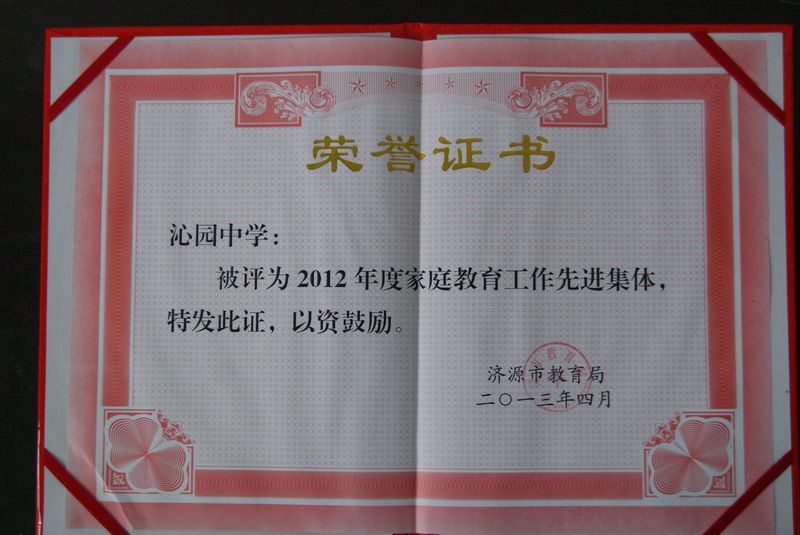 荣誉证书
沁园中学：
被评为 2012 年度家庭教育工作先进集体，
特发此证，以资鼓励。
济源市教育局
二〇一三年四月